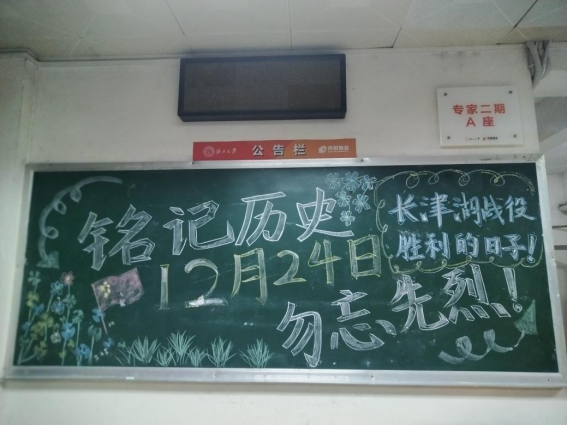 公告栏
专家二期
A座
铭记历史
12月24日
勿忘先烈!
长津湖战役
胜利的日子!